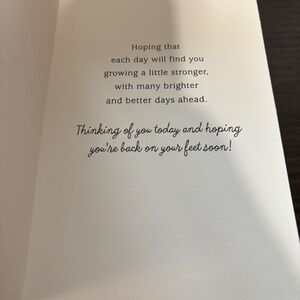 Hoping that
each day will find you
growing a little stronger,
with many brighter
and better days ahead.
Thinking of you today and hoping
you're back on your feet soon!